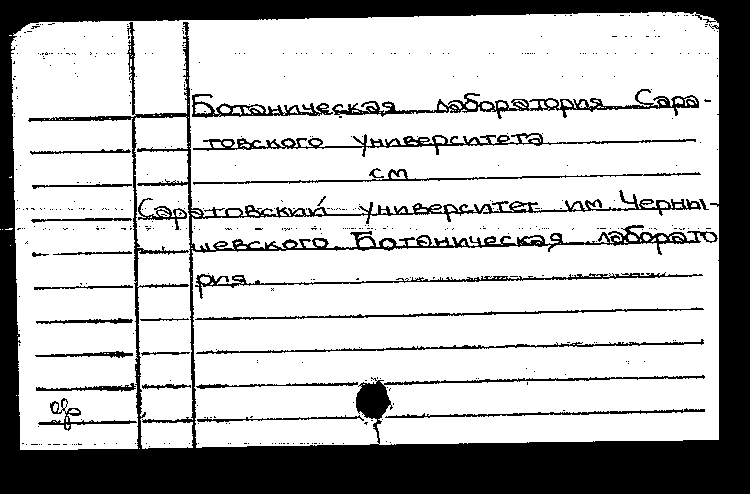 Ботаническая лаборатория Сара-
товского университета
см
Саратовский университет им. Черны-
шевского. Ботаническая лаборато
рия.